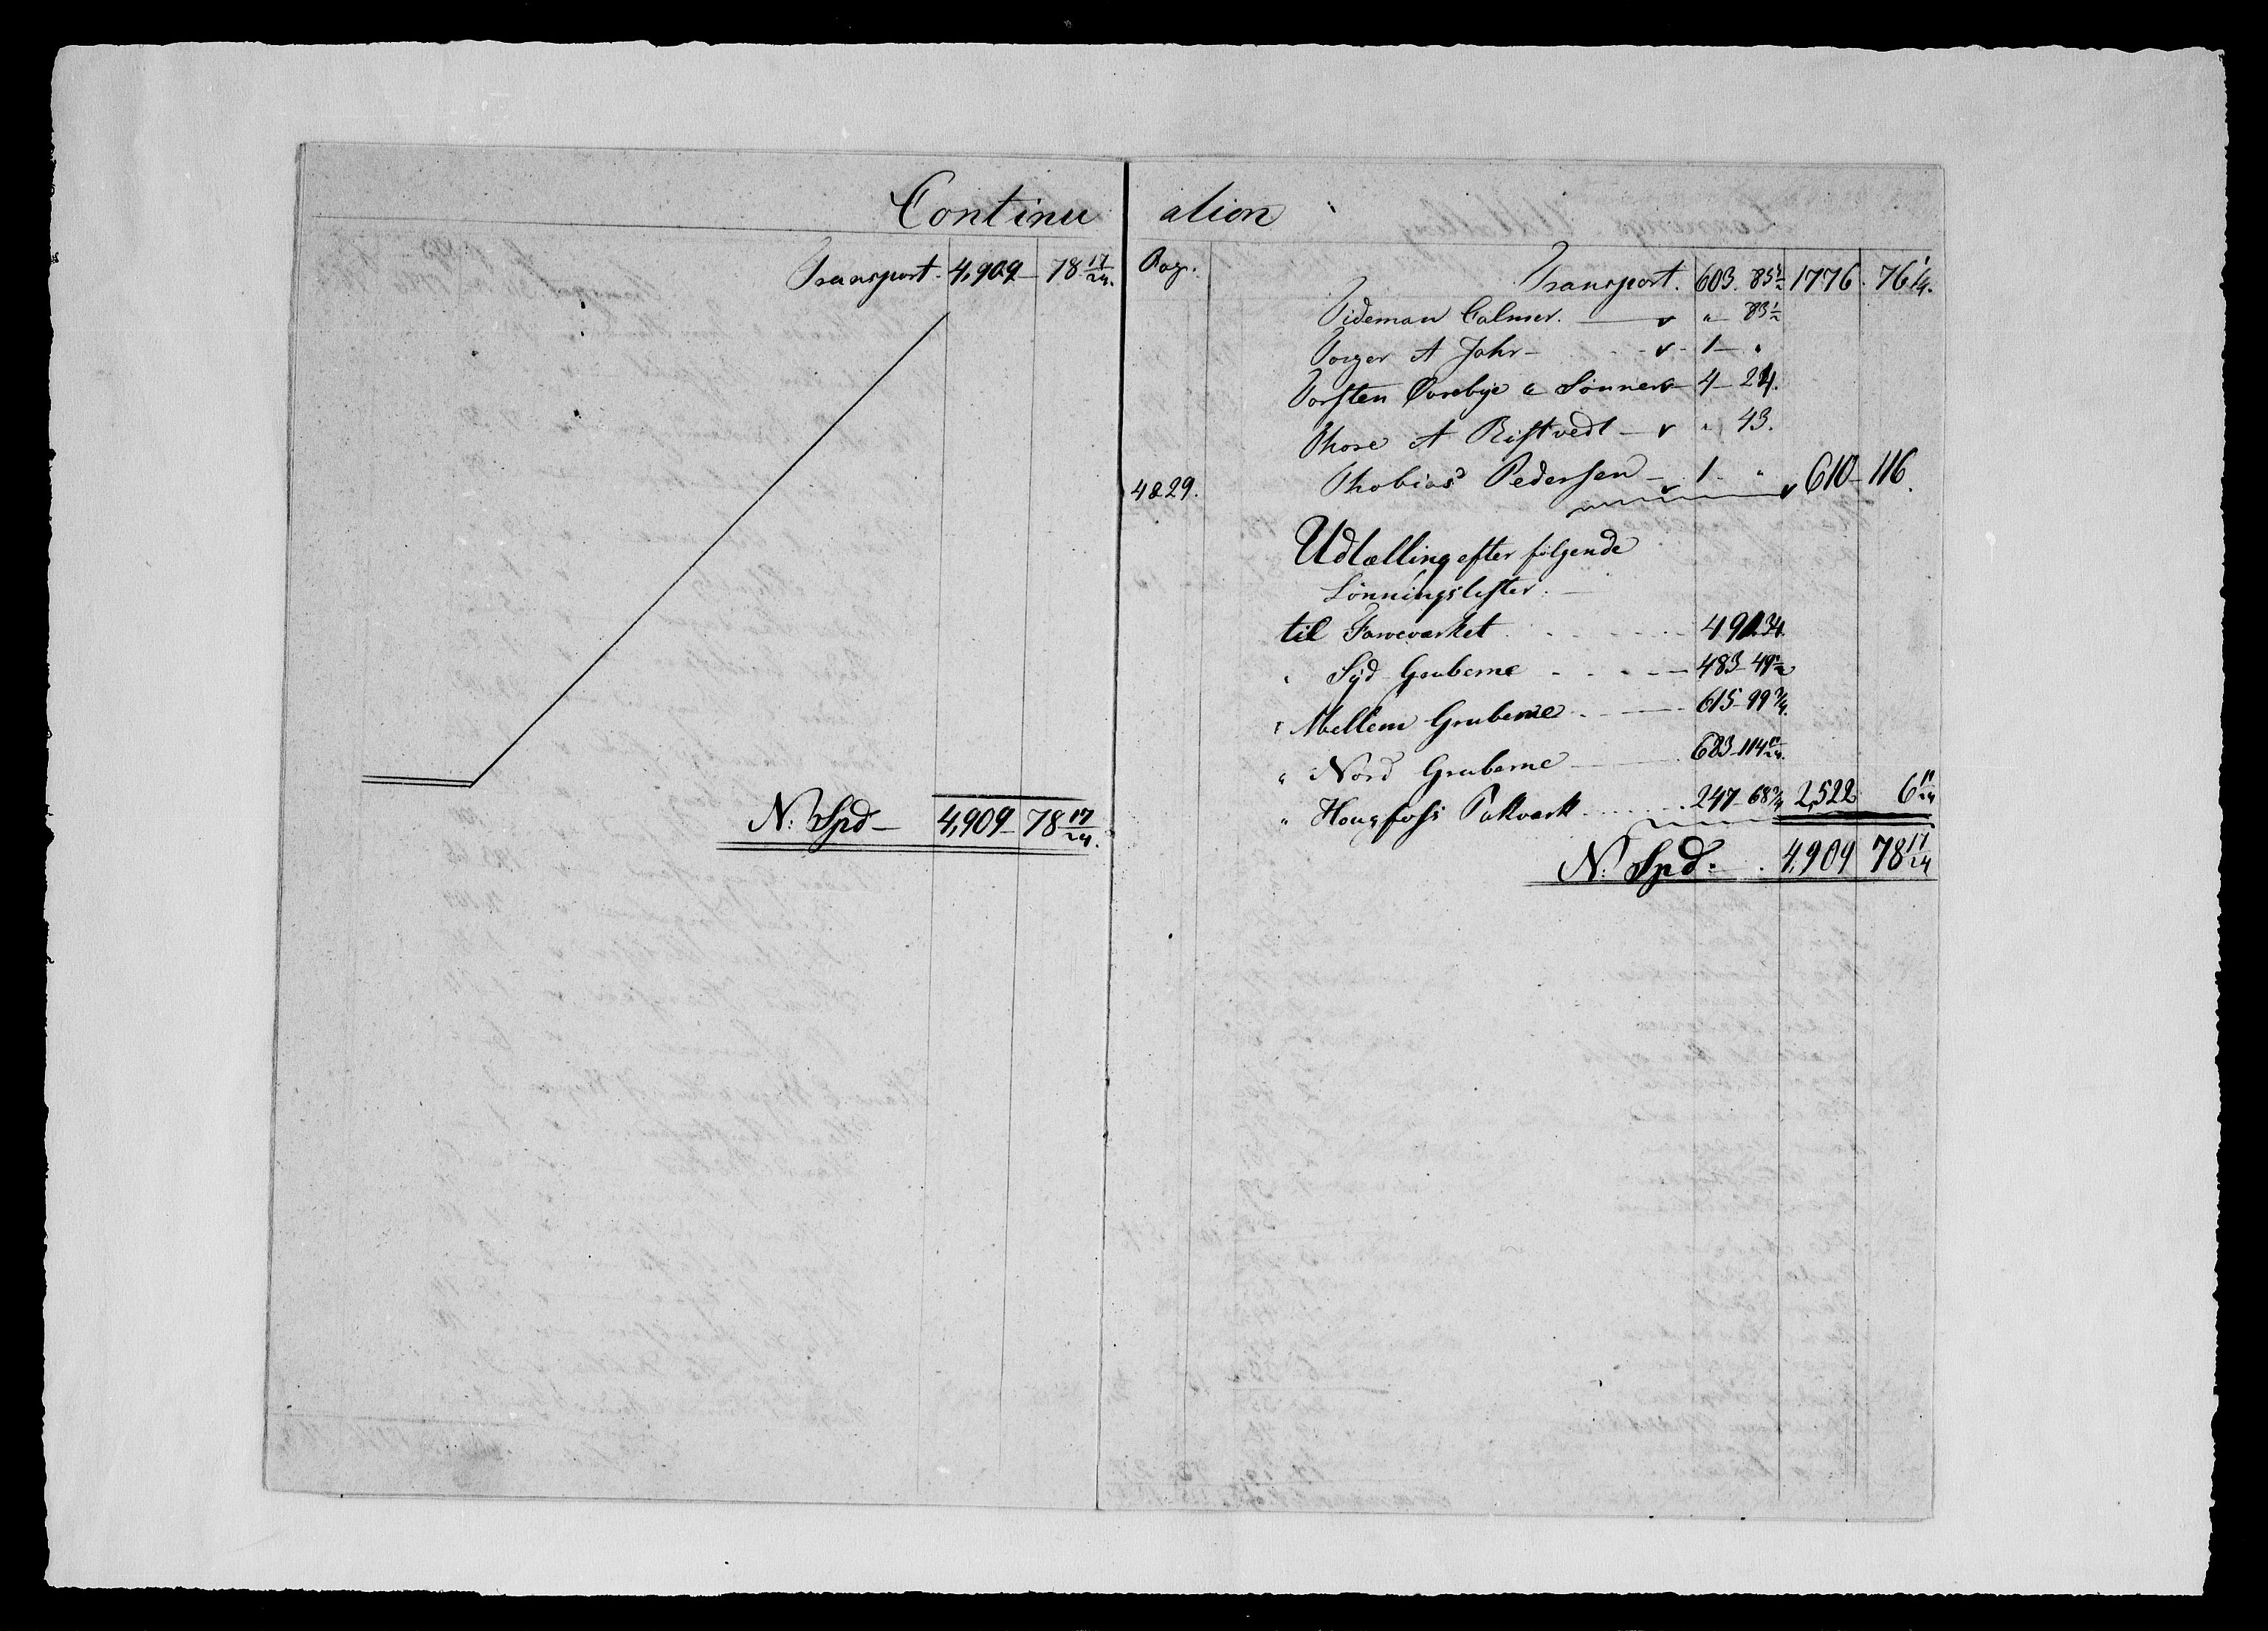 Continuation
Transport. 4,909 - 78 17/24.
N: Spd - 4,909 - 78 17/24.
Pag. Transport. 603. 83 1/2 1776. 76 1/4.
Tideman Calmer. — v " 83 1/2
Torger A Johr - v - 1 - "
Torsten Overbye & Sønner v - 4 - 24.
Thore A Ristvedt - v " 43.
4829. Thobias Pedersen - v 1 - " v 610 - 116.
Udtælling efter følgende
Lønningslister: -
til Farveværket 491. 34.
" Syd Gruberne - 483 - 49 1/2
" Mellem Gruberne - 615 - 99 3/4.
" Nord Gruberne - 683 - 114 11/24.
" Hougfoss Pukværk 247 - 68 3/4 2,522 6 11/24
N: Spd. 4,909 78 17/24